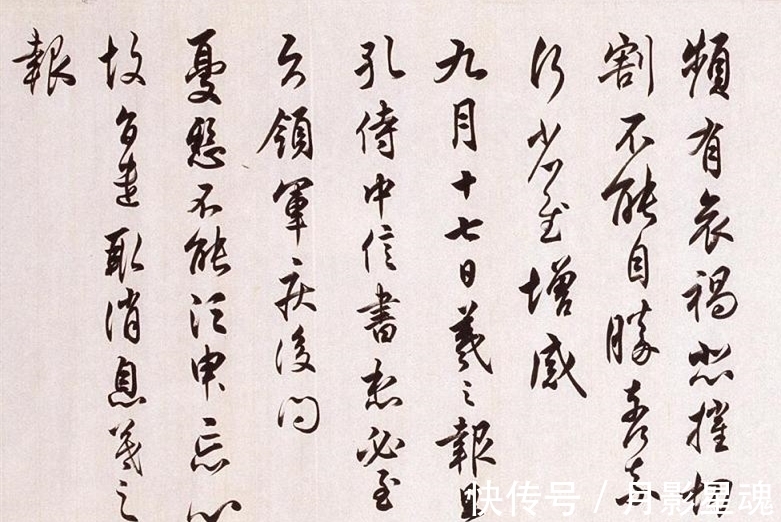 頻有哀禍悲摧切
割不能自勝奈何奈
何省慰增感
九月十七日羲之報且
孔侍中信書想必至
知領軍疾後問
憂懸不能須臾忘心
故旨遣取消息羲之
報
快传号 / 月影星魂